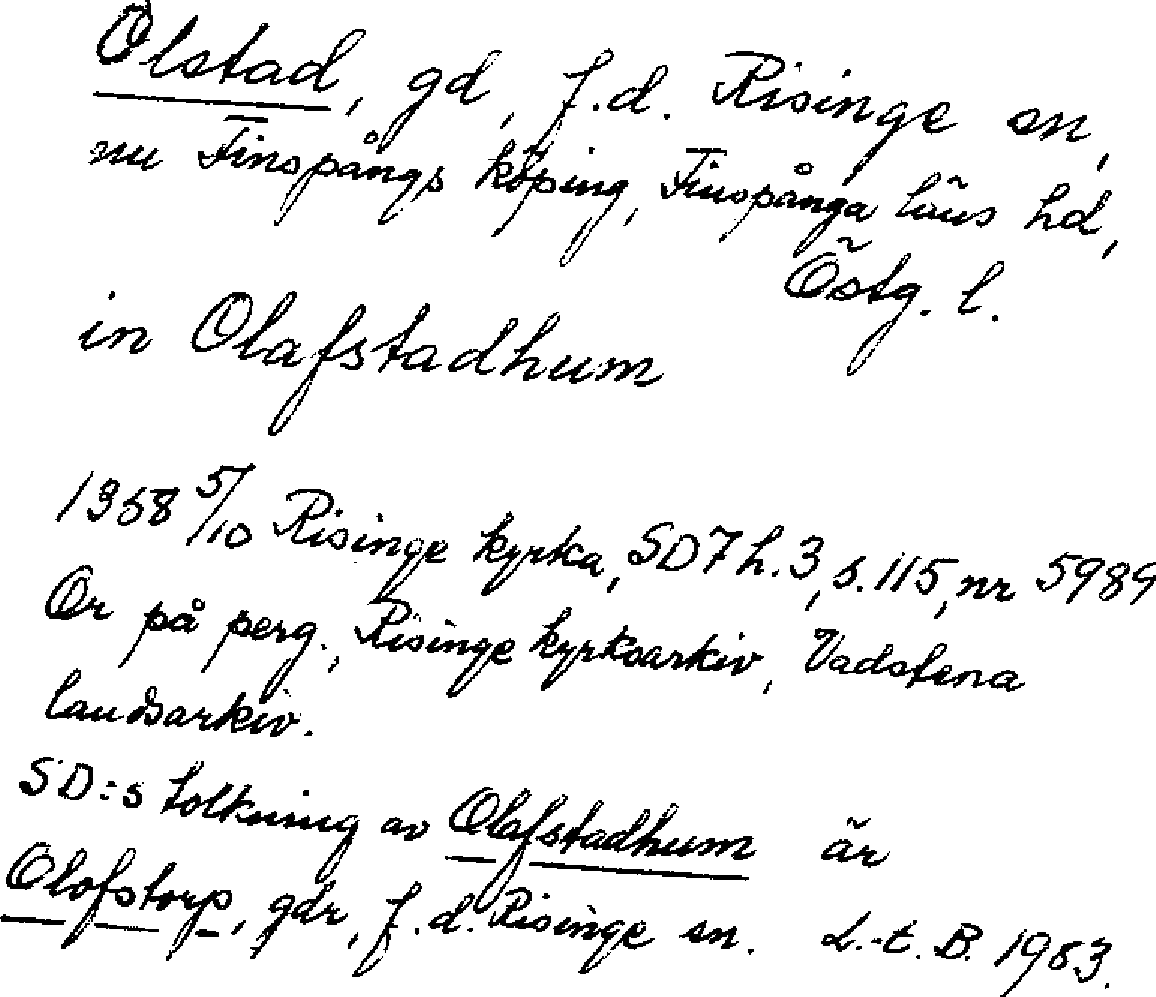 Olstad, gd, f.d. Risinge sn,
nu Finspångs köping, Finspånga läns hd,
Östg. l.
in Olafstadhum
1358 5/10 Risinge kyrka, SD 7 h. 3, s. 115, nr 5989
Or på perg., Risinge kyrkoarkiv, Vadstena
landsarkiv.
SD:s tolkning av Olafstadhum är
Olofstorp, gdr, f.d. Risinge sn. L.-t. B. 1983.